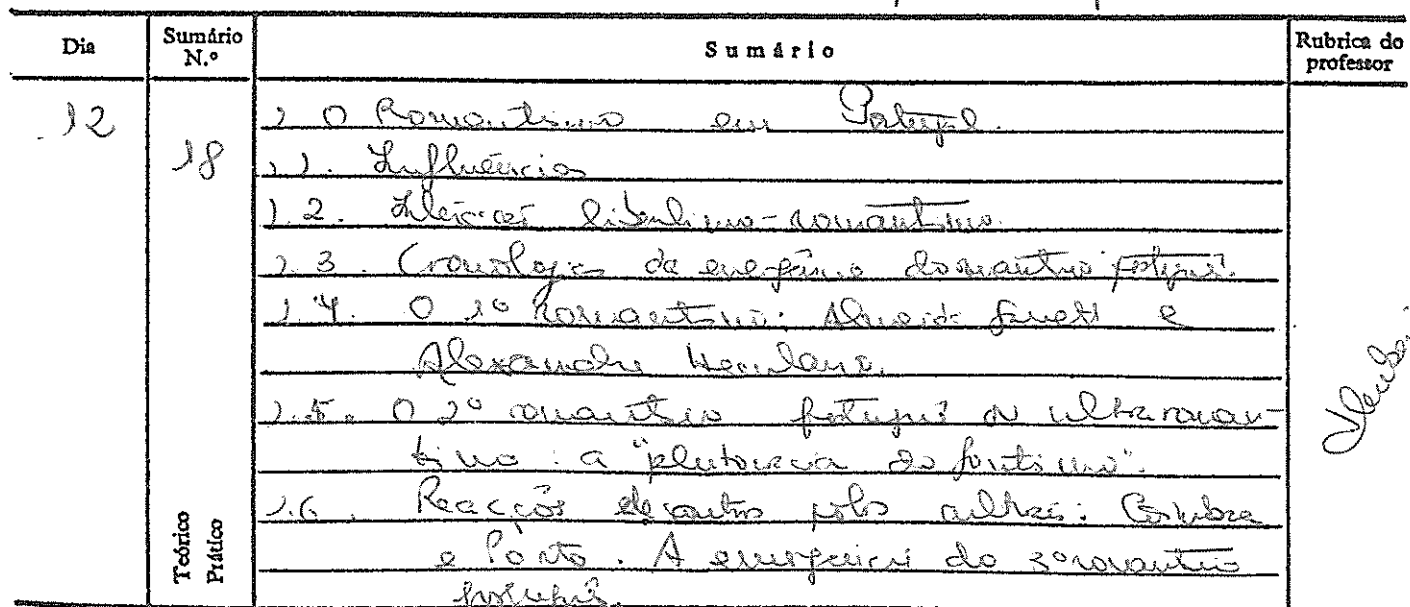 Dia Sumário N.º Sumário Rubrica do professor
12 18 1. O Romantismo em Portugal.
1.1. Influências
1.2. liberalismo-romantismo.
1.3. Cronologia da emergência do romantismo português.
1.4. O 1º romantismo: Almeida Garrett e
Alexandre Herculano.
1.5. O 2º romantismo português ou ultraroman-
tismo: a "plutocracia do fontismo".
1.6. Reacções de outros polos culturais: Coimbra
e Porto. A emergência do 3º romantismo
português.
Teórico
Prático